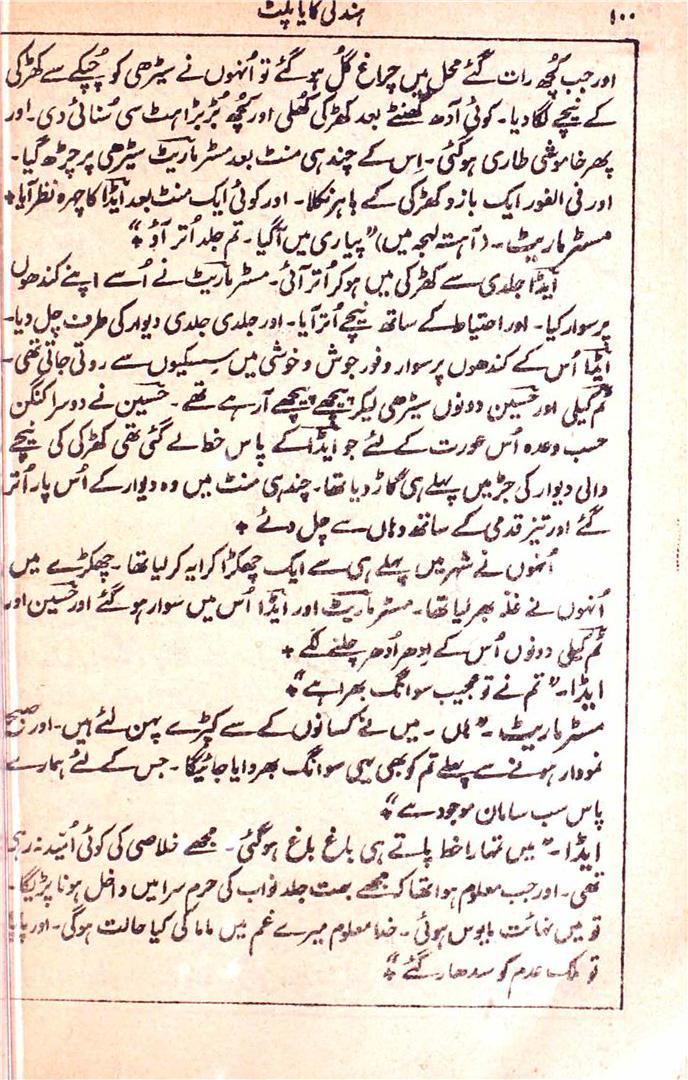 ۱۰۰
ہند کی کایا پلٹ
اور جب کچھ رات گئے محل میں چراغ گل ہو گئے تو اُنہوں نے سیڑھی کو چُپکے سے کھڑکی
کے نیچے لگا دیا۔ کوئی آدھ گھنٹے بعد کھڑکی کھلی اور کچھ بُڑبڑاہٹ سی سُنائی دی۔ اور
پھر خاموشی طاری ہو گئی۔ اِس کے چند ہی منٹ بعد مسٹر ماریٹ سیڑھی پر چڑھ گیا۔
اور فی الفور ایک بازو کھڑکی کے باہر نکلا۔ اور کوئی ایک منٹ بعد ایڈا کا چہرہ نظر آیا ٭
مسٹر ماریٹ۔ (آہستہ لہجہ میں) "پیاری میں آگیا۔ تم جلد اُتر آؤ" ٭
ایڈا جلدی سے کھڑکی میں ہو کر اُتر آئی۔ مسٹر ماریٹ نے اُسے اپنے کندھوں
پر سوار کیا۔ اور احتیاط کے ساتھ نیچے اُتر آیا۔ اور جلدی جلدی دیوار کی طرف چل دیا۔
ایڈا اُس کے کندھوں پر سوار وفور جوش و خوشی میں سِسکیوں سے روتی جاتی تھی۔
ٹم کیلی اور حسین دونوں سیڑھی لیکر پیچھے پیچھے آ رہے تھے۔ حسین نے دوسرا کنگن
حسب وعدہ اُس عورت کے لئے جو ایڈا کے پاس خط لے گئی تھی کھڑکی کی نیچے
والی دیوار کی جڑ میں پہلے ہی گاڑ دیا تھا۔ چند ہی منٹ میں وہ دیوار کے اُس پار اُتر
گئے اور تیز قدمی کے ساتھ وہاں سے چل دئے ٭
اُنہوں نے شہر میں پہلے ہی سے ایک چھکڑا کرایہ کر لیا تھا۔ چھکڑے میں
اُنہوں نے غلّہ بھر لیا تھا۔ مسٹر ماریٹ اور ایڈا اُس میں سوار ہو گئے اور حسین اور
ٹم کیلی دونوں اُس کے اِدھر اُدھر چلنے لگے ٭
ایڈا۔ "تم نے تو عجیب سوانگ بھرا ہے" ٭
مسٹر ماریٹ۔ "ہاں۔ میں نے کسانوں کے سے کپڑے پہن لئے ہیں۔ اور صبح
نمودار ہونے سے پہلے تم کو بھی یہی سوانگ بھروایا جائیگا۔ جس کے لئے ہمارے
پاس سب سامان موجود ہے" ٭
ایڈا۔ "میں تمہارا خط پاتے ہی باغ باغ ہو گئی۔ مجھے خلاصی کی کوئی اُمّید نہ رہی
تھی۔ اور جب معلوم ہوا تھا کہ مجھے بہت جلد نواب کی حرم سرا میں داخل ہونا پڑیگا۔
تو میں نہائت مایوس ہوئی۔ خدا معلوم میرے غم میں ماما کی کیا حالت ہوگی۔ اور پاپا
تو ملک عدم کو سدھار گئے" ٭